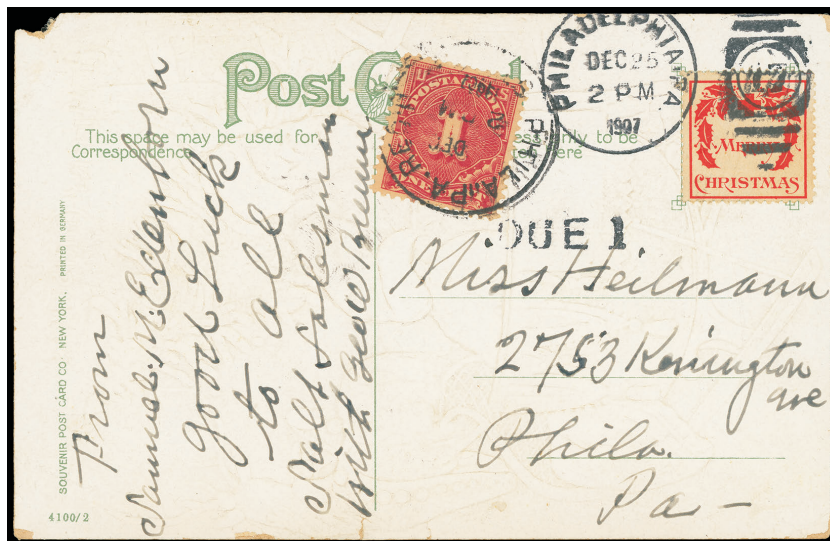 Post
This space may be used for
Correspondence
to be
here
PHILADELPHIA, PA.
DEC 25
2 PM
1907
POSTAGE DUE
1
ONE
PHILA., PA.
DEC
MERRY
CHRISTMAS
DUE 1
Miss Heilmann
2753 Kensington
ave
Phila.
Pa –
From
Samuel M. Edenborn
good Luck
to all
Salt Salesman
with Geo W Bremer
SOUVENIR POST CARD CO. NEW YORK, PRINTED IN GERMANY
4100/2